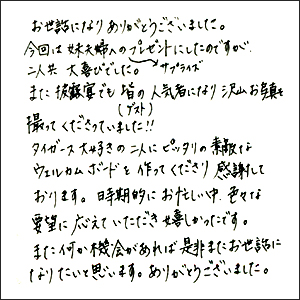 お世話になり ありがとうございました。
今回は 妹夫婦への プレゼントにしたのですが、
サプライズ
二人共 大喜びでした。
また 披露宴でも 皆の 人気者になり 沢山 お写真を
(ゲスト)
撮ってくださっていました!!
タイガース 大好きの 二人に ピッタリの 素敵な
ウェルカム ボードを 作ってくださり 感謝して
おります。 時期的に お忙しい中、色々な
要望に 応えて いただき 嬉しかったです。
また 何か 機会が あれば 是非 また お世話に
なりたいと 思います。 ありがとうございました。